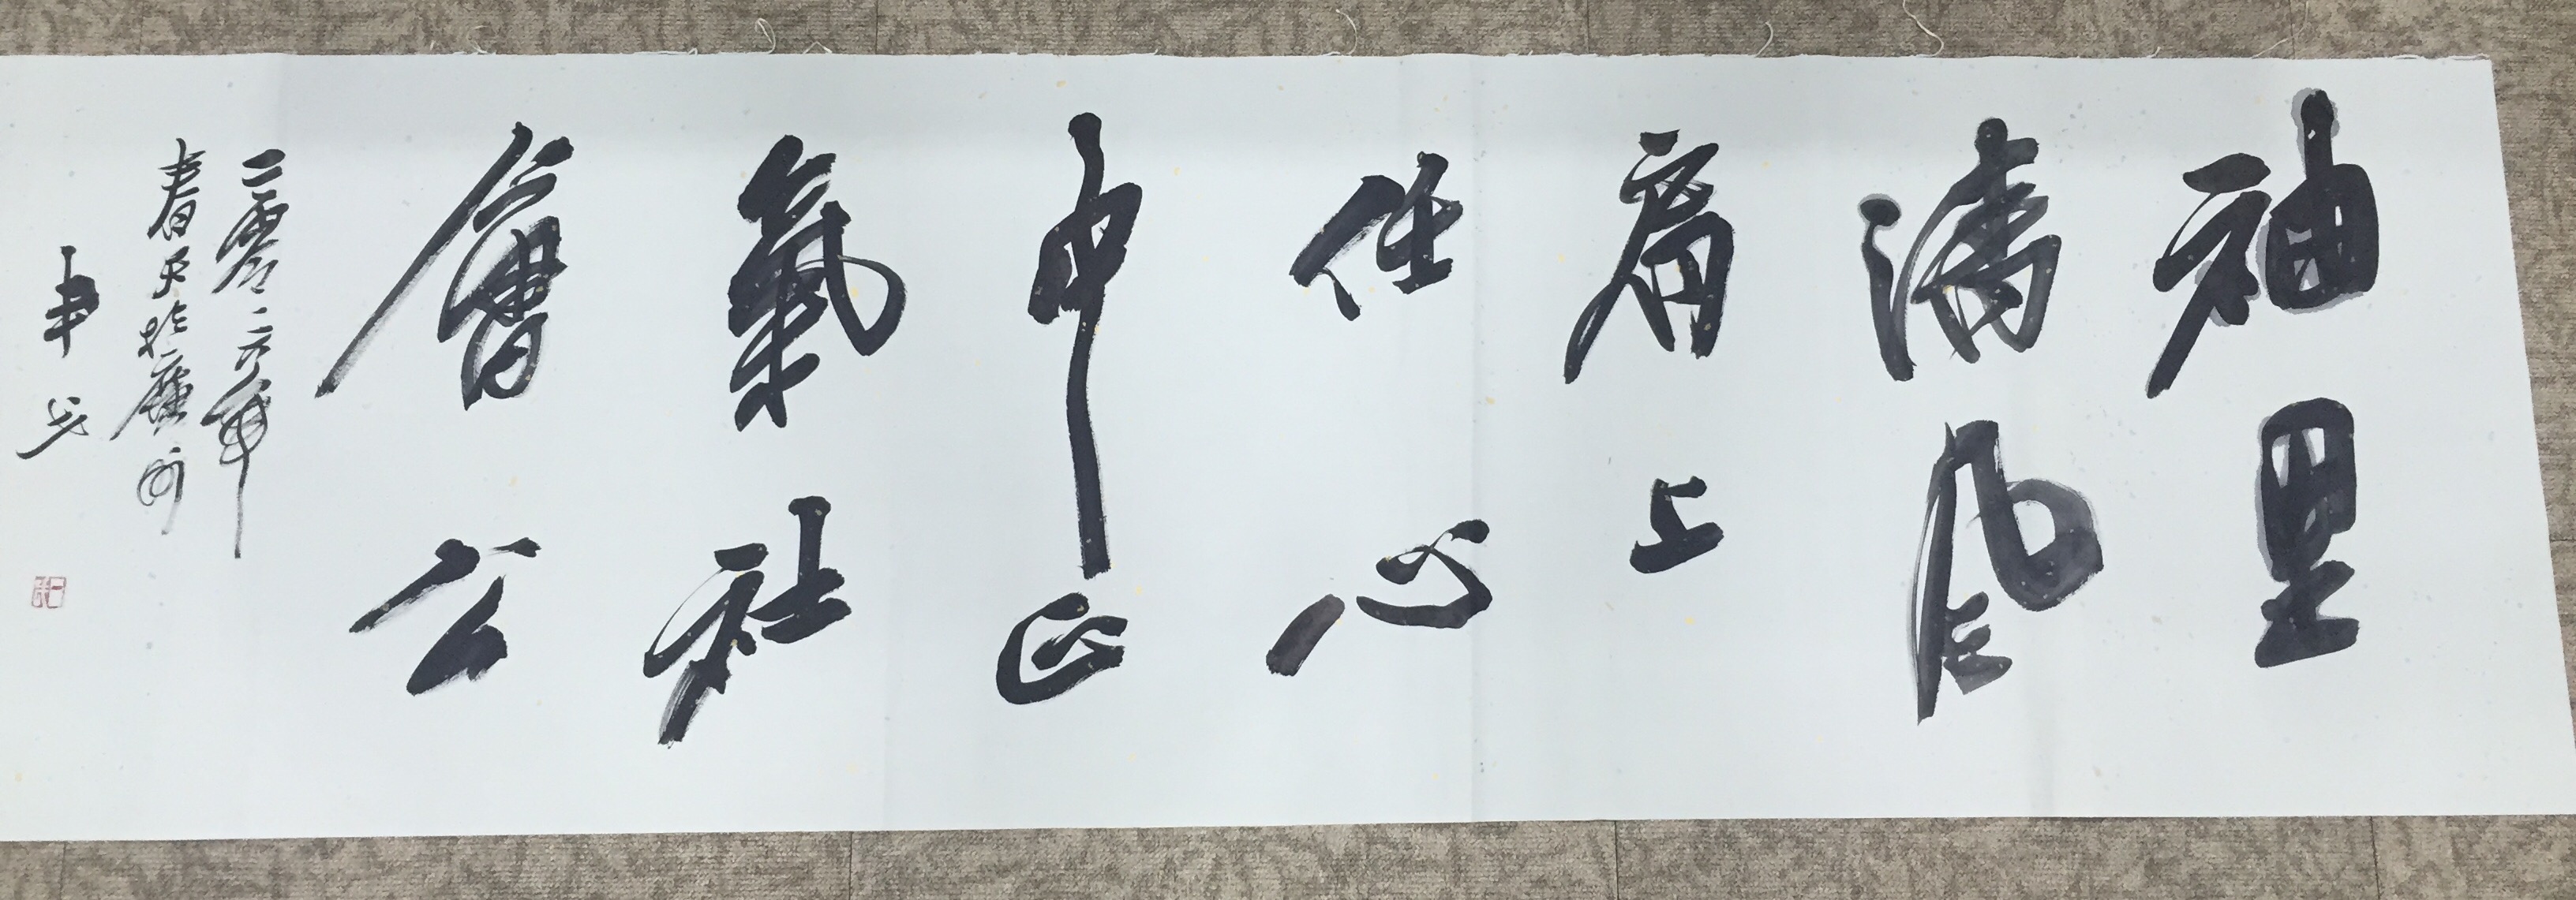 袖里
清风
肩上
任心
中正
氣社
會公
二零一六年
春天於廣州